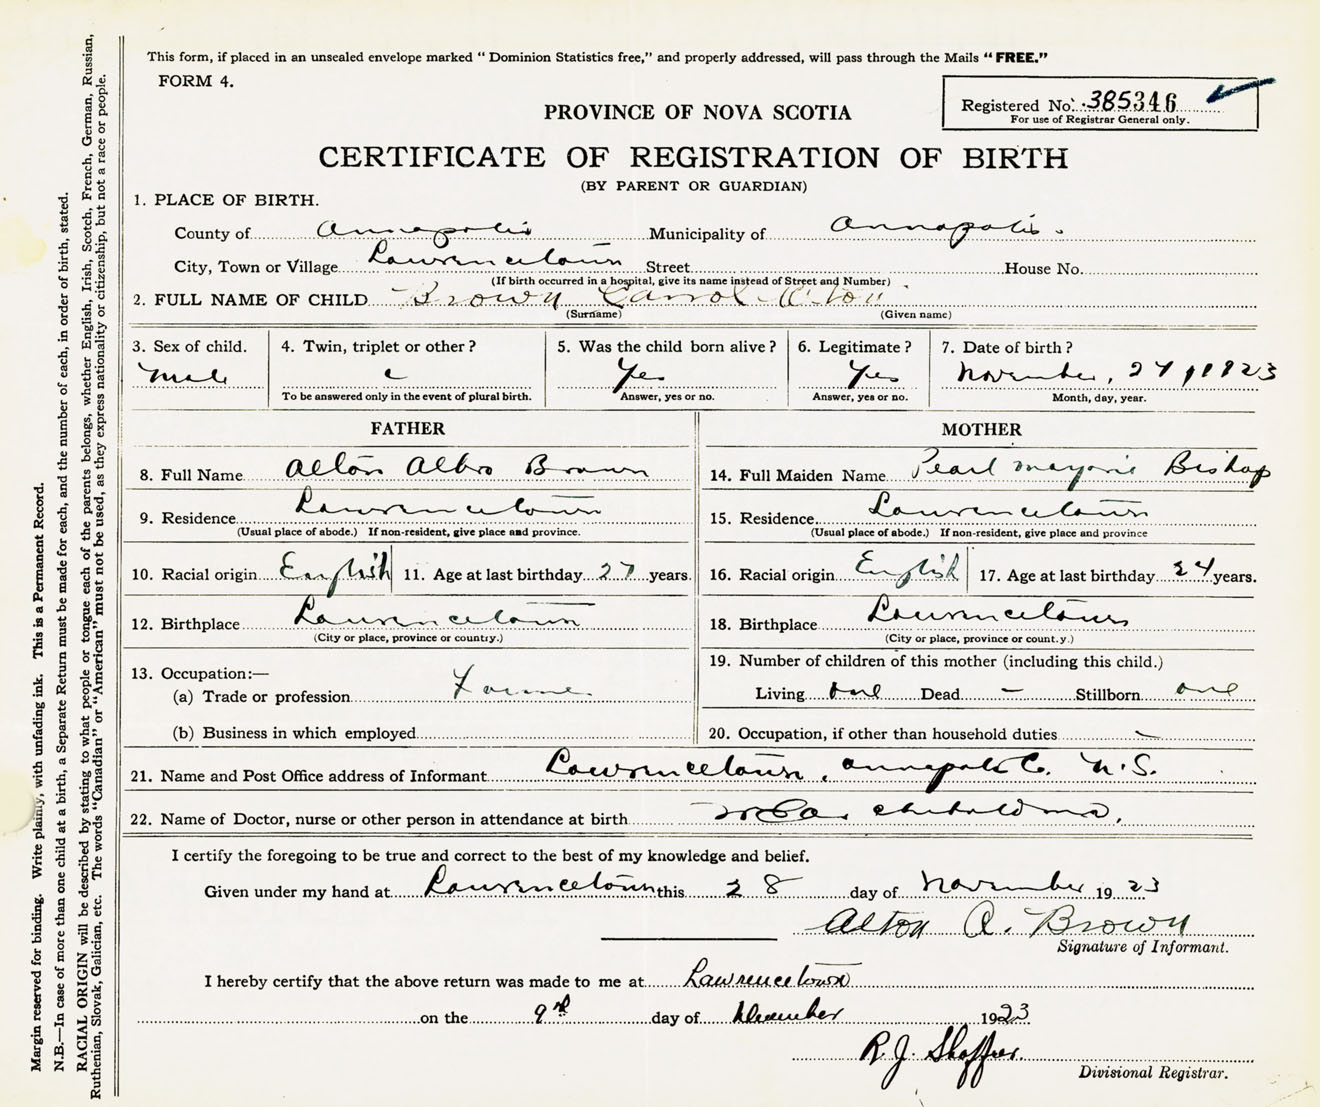 This form, if placed in an unsealed envelope marked "Dominion Statistics free," and properly addressed, will pass through the Mails "FREE."
FORM 4.
Registered No. 385346
For use of Registrar General only.
PROVINCE OF NOVA SCOTIA
CERTIFICATE OF REGISTRATION OF BIRTH
(BY PARENT OR GUARDIAN)
1. PLACE OF BIRTH.
County of Annapolis Municipality of Annapolis.
City, Town or Village Lawrencetown Street House No.
(If birth occurred in a hospital, give its name instead of Street and Number)
2. FULL NAME OF CHILD Brown Carrol Alton
(Surname) (Given name)
3. Sex of child. 4. Twin, triplet or other? 5. Was the child born alive? 6. Legitimate? 7. Date of birth?
Male Yes Yes November, 24, 1923
To be answered only in the event of plural birth. Answer, yes or no. Answer, yes or no. Month, day, year.
FATHER MOTHER
8. Full Name Alton Albro Brown 14. Full Maiden Name Pearl Marjorie Bishop
9. Residence Lawrencetown 15. Residence Lawrencetown
(Usual place of abode.) If non-resident, give place and province. (Usual place of abode.) If non-resident, give place and province
10. Racial origin English 11. Age at last birthday 27 years. 16. Racial origin English 17. Age at last birthday 24 years.
12. Birthplace Lawrencetown 18. Birthplace Lawrencetown
(City or place, province or country.) (City or place, province or count.y.)
13. Occupation:— 19. Number of children of this mother (including this child.)
(a) Trade or profession Farmer Living one Dead – Stillborn one
(b) Business in which employed 20. Occupation, if other than household duties –
21. Name and Post Office address of Informant Lawrencetown, Annapolis Co. N.S.
22. Name of Doctor, nurse or other person in attendance at birth
I certify the foregoing to be true and correct to the best of my knowledge and belief.
Given under my hand at Lawrencetown this 28 day of November 1923
Alton A. Brown
Signature of Informant.
I hereby certify that the above return was made to me at Lawrencetown
on the 9th day of December 1923
R. J. Shaffner
Divisional Registrar.
Margin reserved for binding. Write plainly, with unfading ink. This is a Permanent Record.
N.B.—In case of more than one child at a birth, a Separate Return must be made for each, and the number of each, in order of birth, stated.
RACIAL ORIGIN will be described by stating to what people or tongue each of the parents belongs, whether English, Irish, Scotch, French, German, Russian,
Ruthenian, Slovak, Galician, etc. The words "Canadian" or "American" must not be used, as they express nationality or citizenship, but not a race or people.